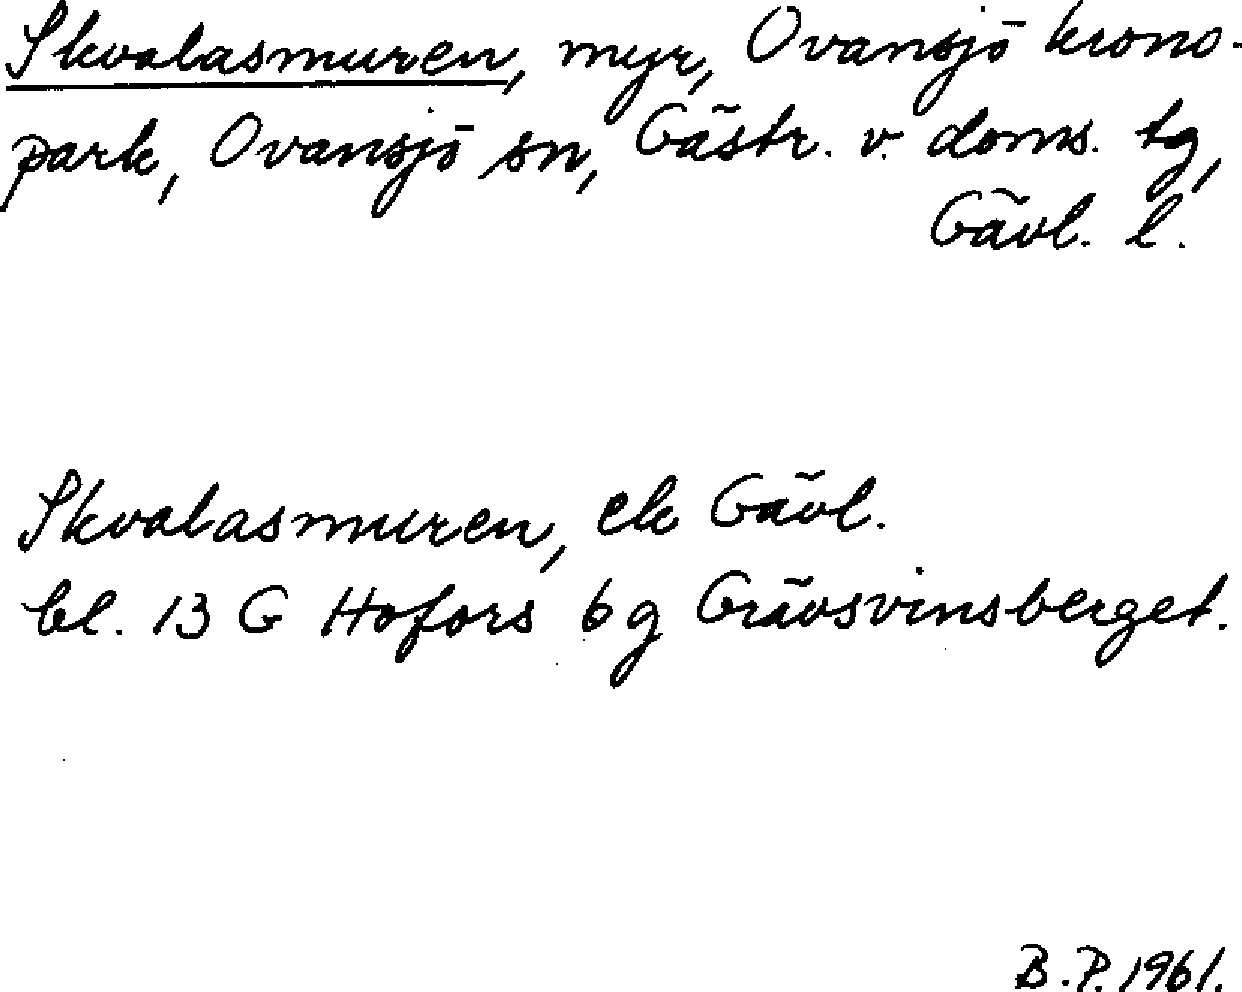 Skvalasmuren, myr, Ovansjö krono-
park, Ovansjö sn, Gästr. v. doms. tg,
Gävl. l.
Skvalasmuren, ek Gävl.
bl. 13 G Hofors 6 g Grävsvinsberget.
B.P. 1961.